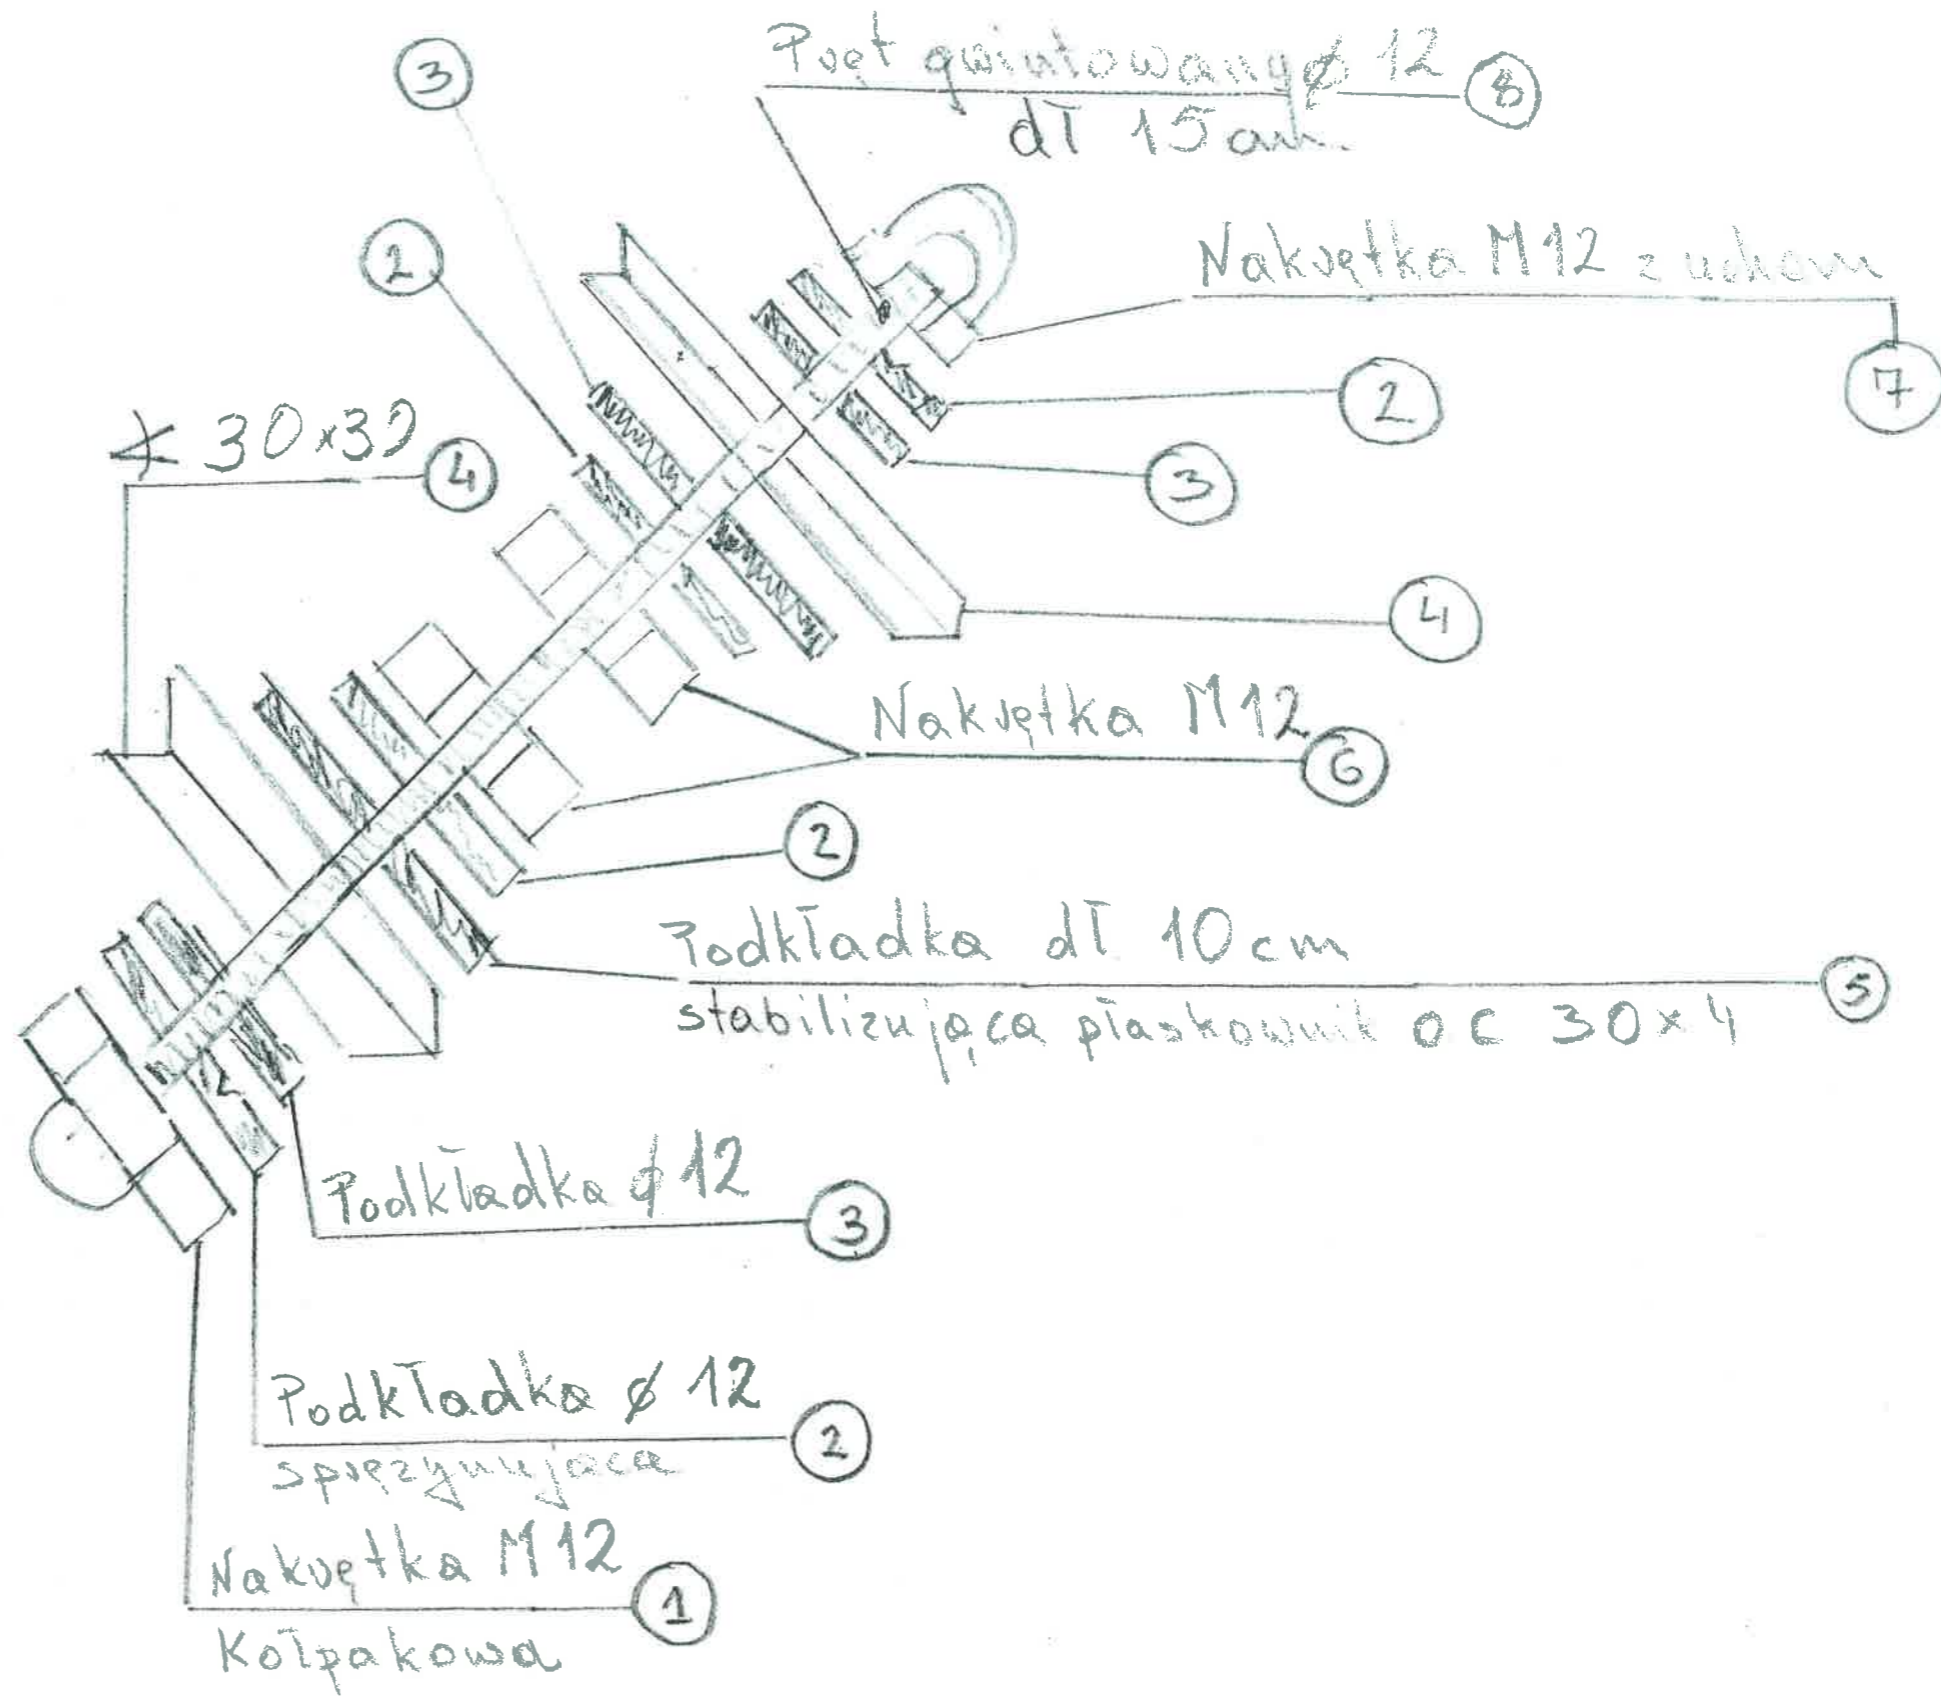 3
Pręt gwintowany ø 12 8
dł 15 cm
2
Nakrętka M12 z uchem
7
2
∢ 30x30 4
3
4
Nakrętka M12
6
2
Podkładka dł 10 cm
5
stabilizująca płaskownik oc 30x4
Podkładka ø 12
3
Podkładka ø 12
2
sprężynująca
Nakrętka M12
1
Kołpakowa